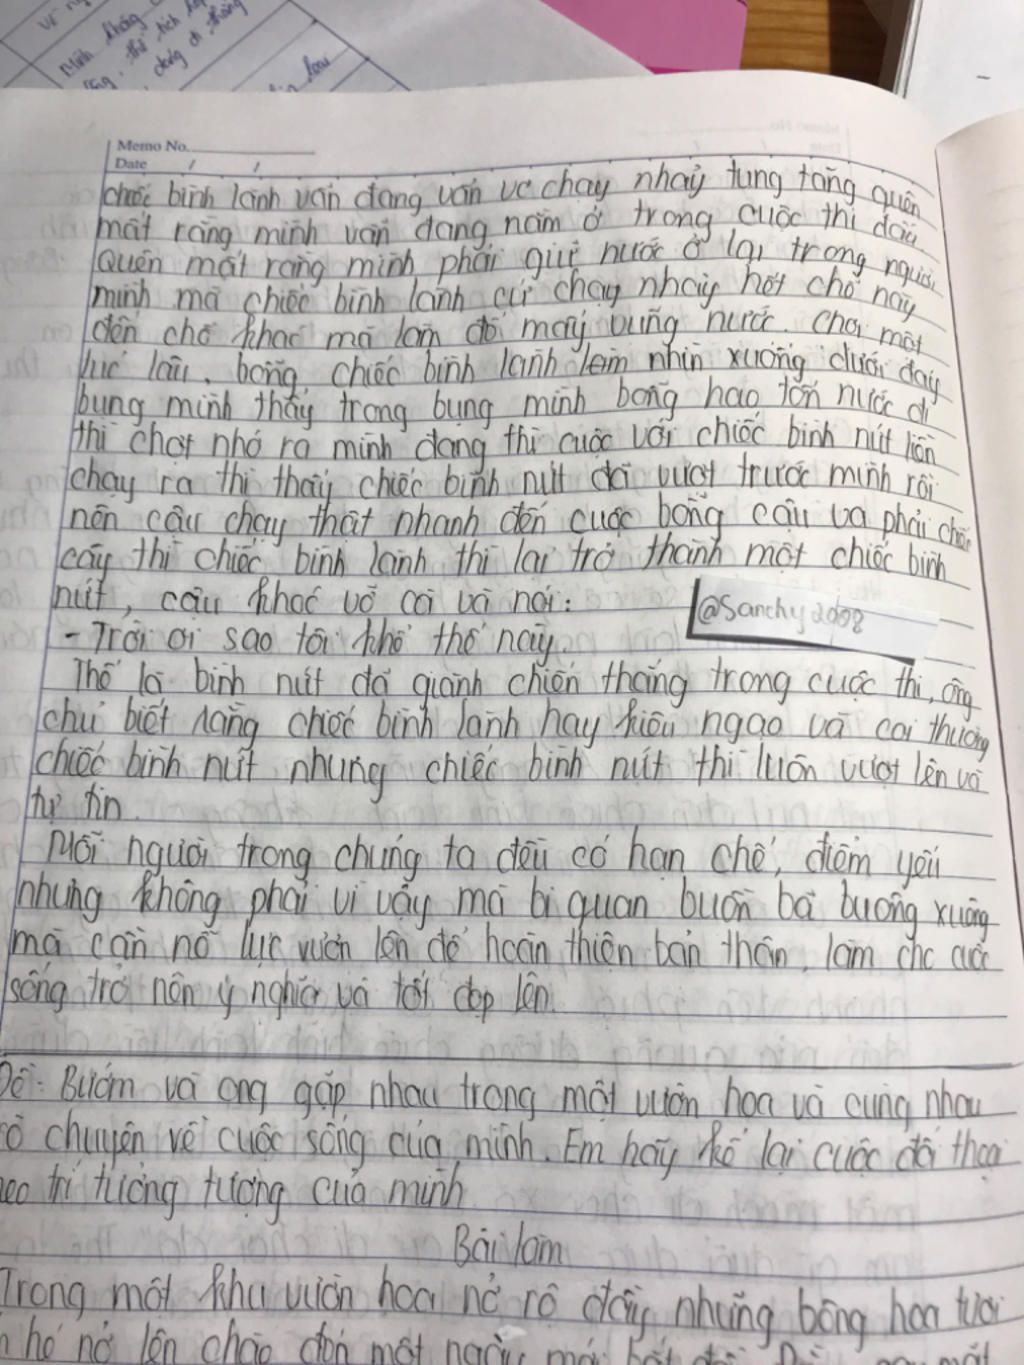 Memo No.
Date / /
chiếc bình lành vẫn đang vẫn vơ chạy nhảy tung tăng quên
mất rằng mình vẫn đang nằm ở trong cuộc thi đấu
Quên mất rằng mình phải giữ nước ở lại trong người
mình mà chiếc bình lành cứ chạy nhảy hết chỗ này
đến chỗ khác mà làm đổ mấy vũng nước. Chơi một
lúc lâu, bỗng, chiếc bình lành lem nhìn xuống dưới đáy
bụng mình thấy trong bụng mình bỗng hao tốn nước đi
thì chợt nhớ ra mình đang thi cuộc với chiếc bình nứt liền
chạy ra thì thấy chiếc bình nứt đã vượt trước mình rồi
nên cậu chạy thật nhanh đến cuộc bỗng cậu va phải chốc
cây thì chiếc bình lành thì lại trở thành một chiếc bình
nứt, cậu khóc vỡ oà và nói:
@Sanchy2008
- Trời ơi sao tôi khổ thế này.
Thế là bình nứt đã giành chiến thắng trong cuộc thi, ông
chủ biết rằng chiếc bình lành hay kiêu ngạo và coi thường
chiếc bình nứt nhưng chiếc bình nứt thì luôn vượt lên và
tự tin.
Mỗi người trong chúng ta đều có hạn chế, điểm yếu
nhưng không phải vì vậy mà bi quan buồn bã buông xuông
mà cần nỗ lực vươn lên để hoàn thiện bản thân, làm cho cuộc
sống trở nên ý nghĩa và tốt đẹp lên.
Đề: Bướm và ong gặp nhau trong một vườn hoa và cùng nhau
chuyện về cuộc sống của mình. Em hãy kể lại cuộc đối thoại
trí tưởng tượng của mình
Bài làm
Trong một khu vườn hoa nở rộ đầy những bông hoa tươi
hé nở lên chào đón một ngày mới